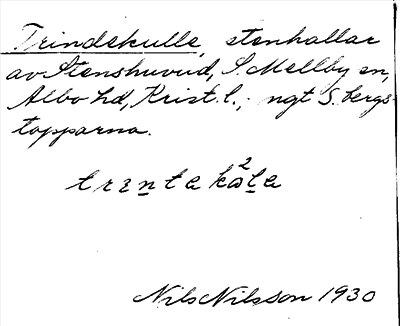 Trindekulle, stenhallar
av Stenshuvud, S. Mellby sn,
Albo hd, Krist. l.; ngt S. bergs-
topparna.
Nils Nilsson 1930